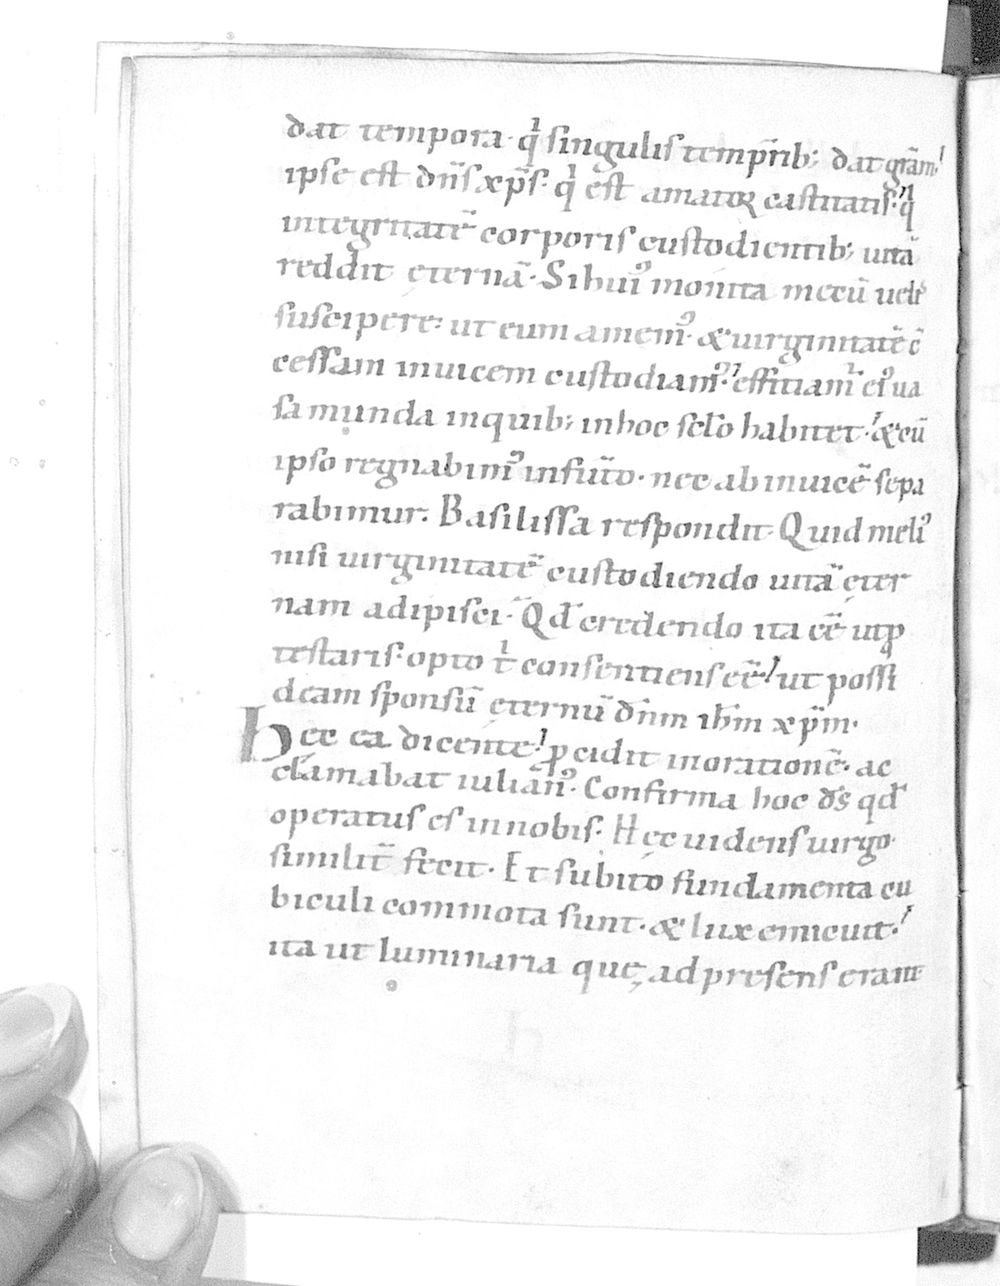 dat tempora· qͥ singulis temp̄rib; dat gr̄am·
ipse est dn̄s xp̄s· qͥ est amator castitatis· qͥ
integritatē corporis custodientib; uitā
reddit ęternā· Si huiꝰ monita mecū uelis
suscipere· ut eum amemꝰ· & uirginitatē c̄
cessam inuicem custodiamꝰ· efficiamur eiꝰ ua
sa munda in quib; in hoc sc̄lo habitet· & cū
ipso regnabimꝰ in fut̄o· nec ab inuicē sepa
rabimur. Basilissa respondit· Quid meliꝰ
nisi uirginitatē custodiendo uitā ęter
nam adipisci· Qđ credendo ita eē̄ ut ꝓ
testaris· opto tͥ consentiens eē̄· ut possi
deam sponsū ęternū dn̄m ih̄m xp̄m·
Hęc ea dicente· ꝓcidit in orationē· ac
clamabat iulianꝰ· Confirma hoc d̄s qđ
operatus es in nobis· Hęc uidens uirgo·
similit̄ fecit· Et subito fundamenta cu
biculi commota sunt· & lux emicuit·
ita ut luminaria quę ad presens erant